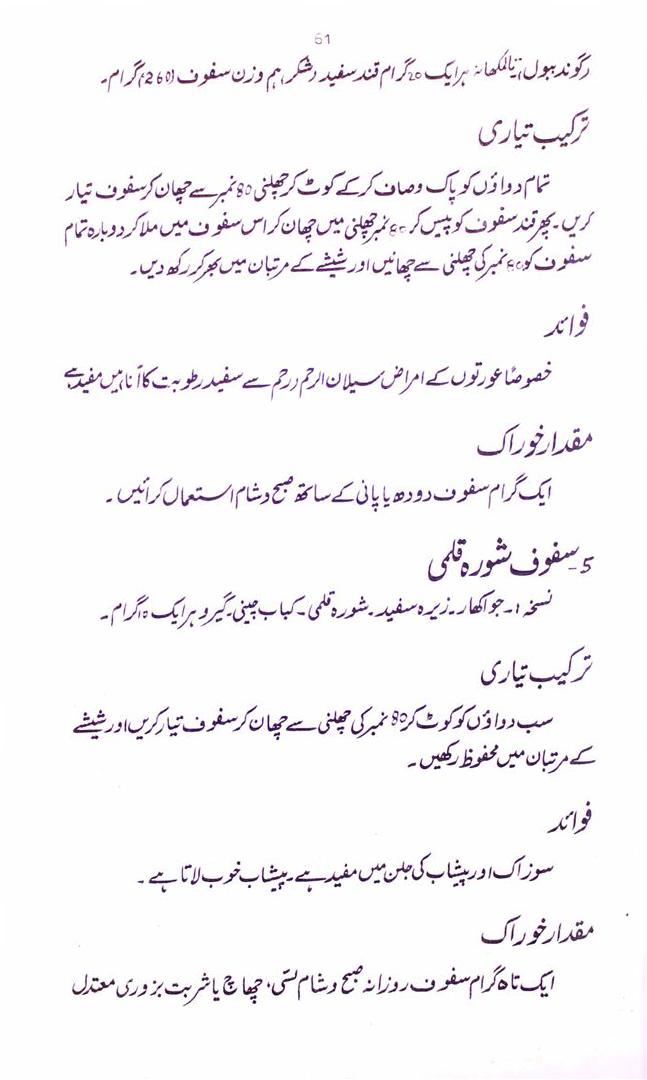 61
(گوند ببول)، تالمکھانہ ہر ایک 20 گرام قند سفید (شکر) ہم وزن سفوف (260) گرام۔
ترکیب تیاری
تمام دواؤں کو پاک وصاف کر کے کوٹ کر چھلنی 80 نمبر سے چھان کر سفوف تیار
کریں۔ پھر قند سفوف کو پیس کر 60 نمبر چھلنی میں چھان کر اس سفوف میں ملا کر دوبارہ تمام
سفوف کو 60 نمبر کی چھلنی سے چھانیں اور شیشے کے مرتبان میں بھر کر رکھ دیں۔
فوائد
خصوصًا عورتوں کے امراض سیلان الرحم (رحم سے سفید رطوبت کا آنا) میں مفید ہے
مقدار خوراک
ایک گرام سفوف دودھ یا پانی کے ساتھ صبح و شام استعمال کرائیں۔
5- سفوف شورہ قلمی
نسخہ 1۔ جواکھار۔ زیرہ سفید۔ شورہ قلمی۔ کباب چینی۔ گیرو ہر ایک 10 گرام۔
ترکیب تیاری
سب دواؤں کو کوٹ کر 80 نمبر کی چھلنی سے چھان کر سفوف تیار کریں اور شیشے
کے مرتبان میں محفوظ رکھیں۔
فوائد
سوزاک اور پیشاب کی جلن میں مفید ہے۔ پیشاب خوب لاتا ہے۔
مقدار خوراک
ایک تا 5 گرام سفوف روزانہ صبح و شام لسّی، چھاچ یا شربت بزوری معتدل